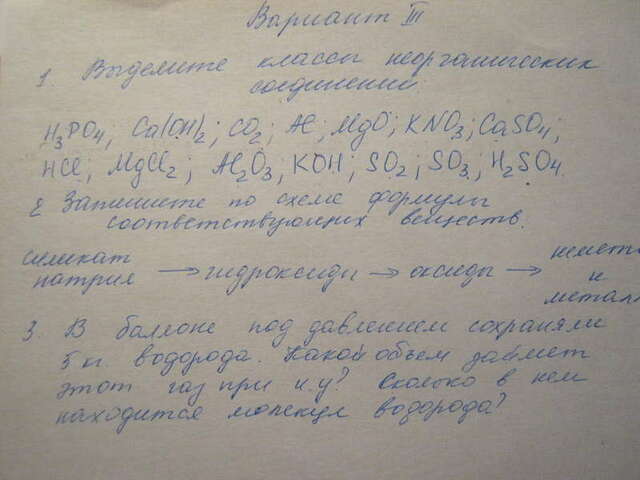 Вариант III
1. Выделите классы неорганических
соединений.
H3PO4; Ca(OH)2; CO2; Al; MgO; KNO3; CaSO4;
HCl; MgCl2; Al2O3; KOH; SO2; SO3; H2SO4.
2 Запишите по схеме формулы
соответствующих веществ.
силикат натрия → гидроксиды → оксиды → немет и метал
3. В баллоне под давлением сохраняли
5 кг. водорода. Какой объем займет
этот газ при н.у? Сколько в нем
находится молекул водорода?